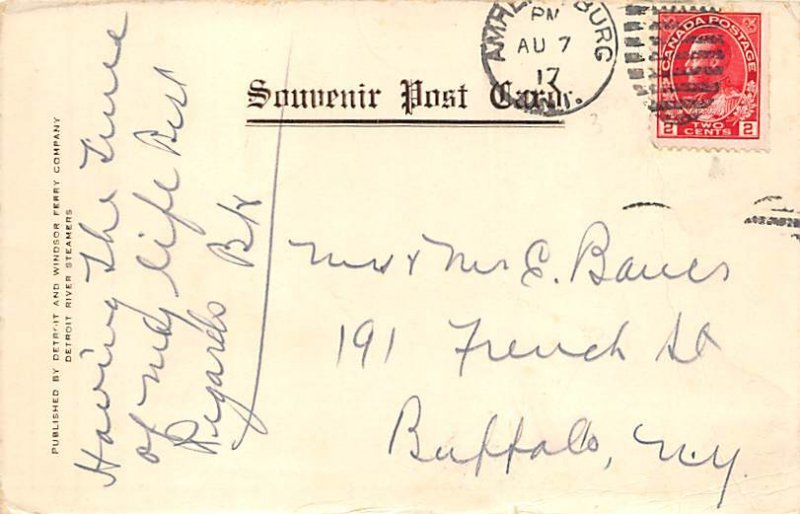 PUBLISHED BY DETROIT AND WINDSOR FERRY COMPANY
DETROIT RIVER STEAMERS
Having the time
of my life Best
Regards
Souvenir Post Card.
PM
AU 7
17
CANADA POSTAGE
2 TWO CENTS 2
Mr & Mrs E. Bauer
191 French St
Buffalo, N.Y.